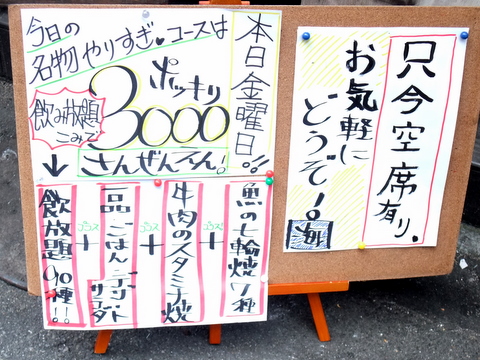 本日金曜日!!
今日の
名物やりすぎ♥コースは
ポッキリ
3000
飲み放題
こみで
さんぜんえん!
↓
魚の七輪焼7種
プラス
+
牛肉のスタミナ焼
プラス
+
一品ごはん デザート
サラダ
プラス
+
飲放題90種!!
只今空席有り。
お気軽に
どうぞ!